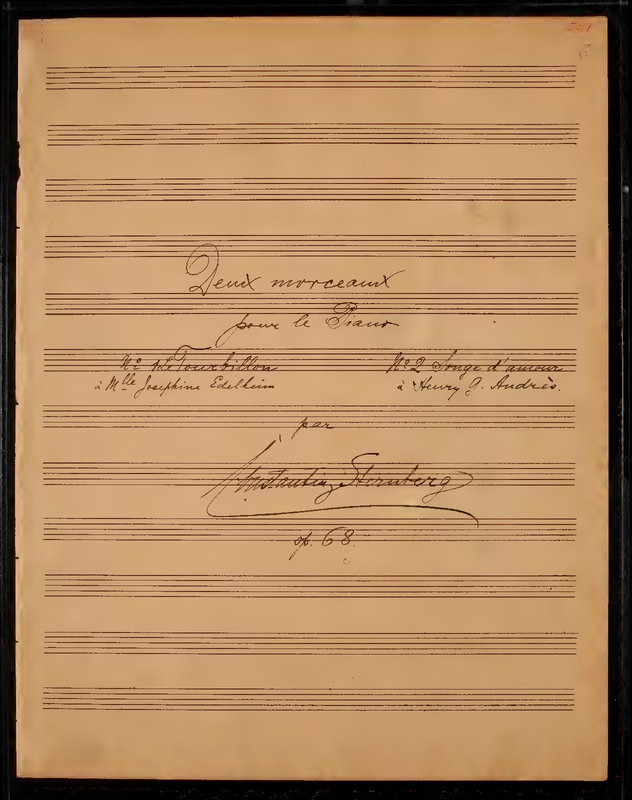 Deux morceaux
pour le Piano
No 1 Le Tourbillon
à Mlle Josephine Edelheim
No 2 Songe d'amour
à Henry G. Andrès.
par
Constantin Sternberg
op. 68.